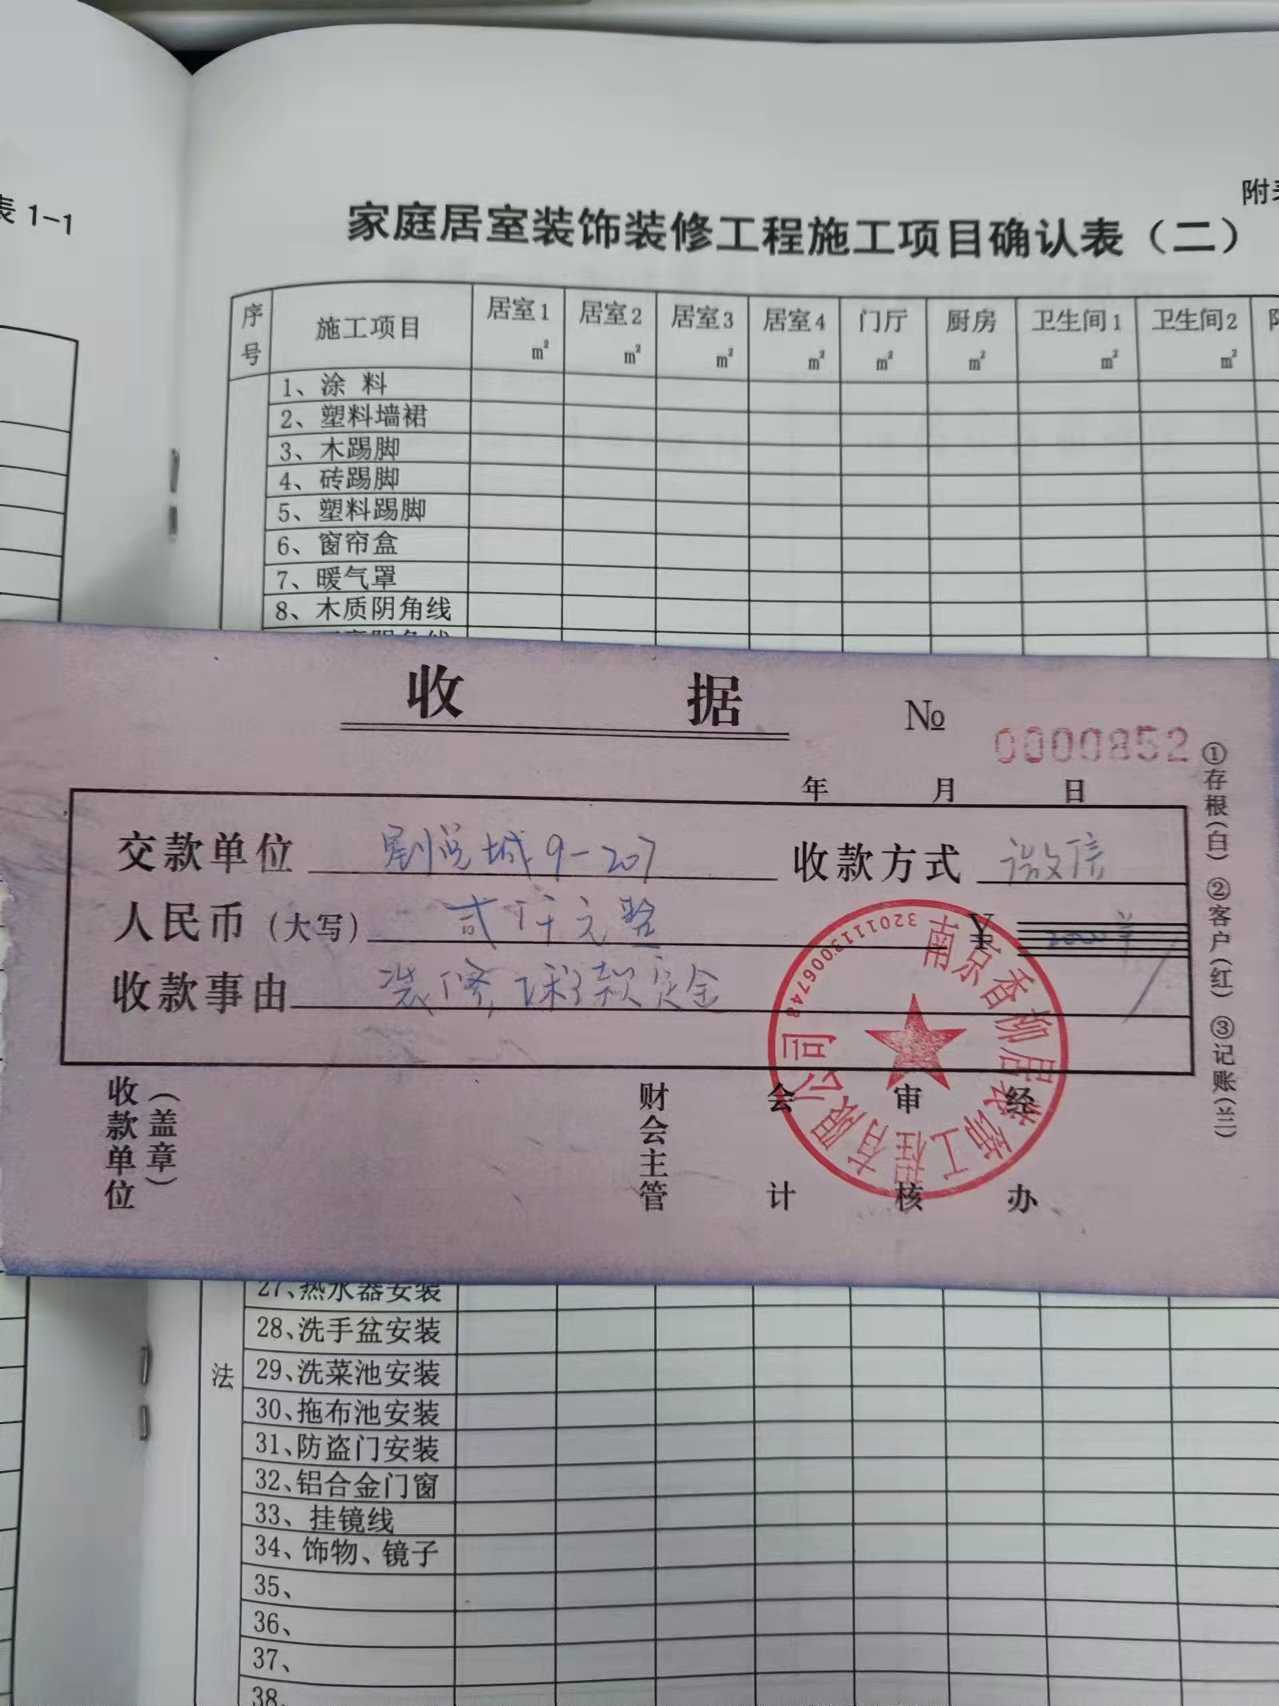 表 1-1
附表
家庭居室装饰装修工程施工项目确认表（二）
序号 施工项目 居室1 m² 居室2 m² 居室3 m² 居室4 m² 门厅 m² 厨房 m² 卫生间1 m² 卫生间2 m²
1、涂 料
2、塑料墙裙
3、木踢脚
4、砖踢脚
5、塑料踢脚
6、窗帘盒
7、暖气罩
8、木质阴角线
收 据 №
0000852
年 月 日
交款单位 城9-207 收款方式 微信
人民币（大写） 贰仟元整 ¥
收款事由 装修 款定金
收款单位（盖章） 财会主管 会计 审核 经办
①存根（白）②客户（红）③记账（兰）
南京香柳居装饰工程有限公司
3201113006748
27、热水器安装
28、洗手盆安装
法
29、洗菜池安装
30、拖布池安装
31、防盗门安装
32、铝合金门窗
33、挂镜线
34、饰物、镜子
35、
36、
37、
38、